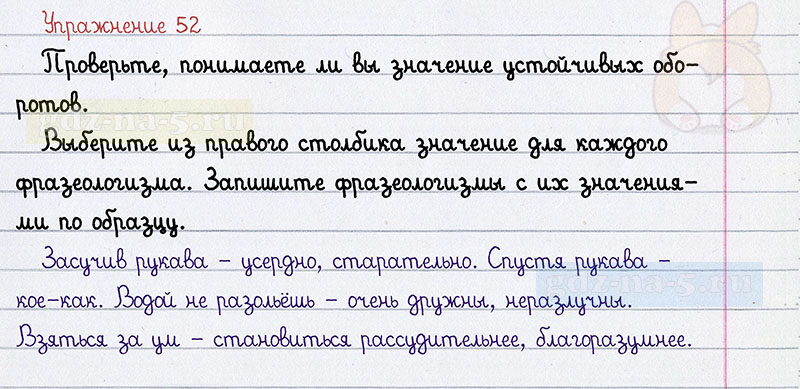 Упражнение 52
Проверьте, понимаете ли вы значение устойчивых обо-
ротов.
gdz-na-5.ru
Выберите из правого столбика значение для каждого
фразеологизма. Запишите фразеологизмы с их значения-
ми по образцу.
Засучив рукава – усердно, старательно. Спустя рукава –
gdz-na-5.ru
кое-как. Водой не разольёшь – очень дружны, неразлучны.
Взяться за ум – становиться рассудительнее, благоразумнее.